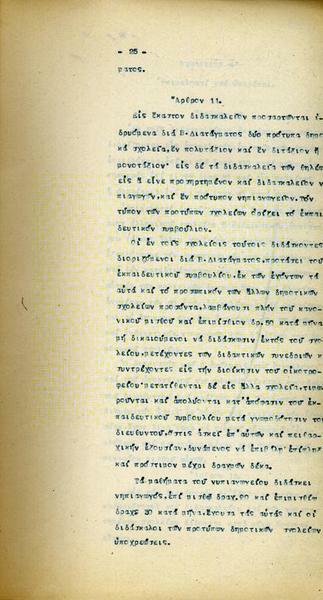 - 25 -
ματος.
Ἄρθρον 11.
Εἰς ἕκαστον διδασκαλεῖον προσαρτῶνται ἱ-
δρυόμενα διά Β.Διατάγματος δύο πρότυπα δημο
κά σχολεῖα,ἕν πολυτάξιον καί ἕν διτάξιον ἤ
μονοτάξιον· εἰς δέ τά διδασκαλεῖα τῶν θηλέων
εἰς ἅ εἶνε προσηρτημένον καί διδασκαλεῖον ν
πιαγωγῶν,καί ἕν πρότυπον νηπιαγωγεῖον.τόν
τύπον τῶν προτύπων σχολείων ὁρίζει τό ἐκπαι
δευτικόν συμβούλιον.
Οἱ ἐν τοῖς σχολείοις τούτοις διδάσκοντες
διοριζόμενοι διά Β.Διατάγματος,προτάσει τοῦ
ἐκπαιδευτικοῦ συμβουλίου,ἐκ τῶν ἐχόντων τά
αὐτά καί τό προσωπικόν τῶν ἄλλων δημοτικῶν
σχολείων προσόντα,λαμβάνουσι πλήν τοῦ κανο-
νικοῦ μισθοῦ καί ἐπιμίσθιον δρ.50 κατά μῆνα,
μή δικαιούμενοι νά διδάσκωσιν ἐκτός τοῦ σχο-
λείου,μετέχοντες τῶν διδακτικῶν συνεδριῶν κ
συντρέχοντες εἰς τήν διοίκησιν τοῦ οἰκοτρο-
φείου·μετατίθενται δέ εἰς ἄλλα σχολεῖα,τιμω-
ροῦνται καί ἀπολύονται κατ'ἀπόφασιν τοῦ ἐκ-
παιδευτικοῦ συμβουλίου μετά γνωμοδότησιν τοῦ
διευθυντοῦ,ὅστις ἀσκεῖ ἐπ'αὐτῶν καί πειθαρ-
χικήν ἐξουσίαν,δυνάμενος νά ἐπιβάλῃ ἐπίπληξ
καί πρόστιμον μέχρι δραχμῶν δέκα.
Τά μαθήματα τοῦ νηπιαγωγείου διδάσκει
νηπιαγωγός,ἐπί μισθῷ δραχ.90 καί ἐπιμισθίῳ
δραχ 30 κατά μῆνα,ἔχουσα τάς αὐτάς καί οἱ
διδάσκαλοι τῶν προτύπων δημοτικῶν σχολείων
ὑποχρεώσεις.